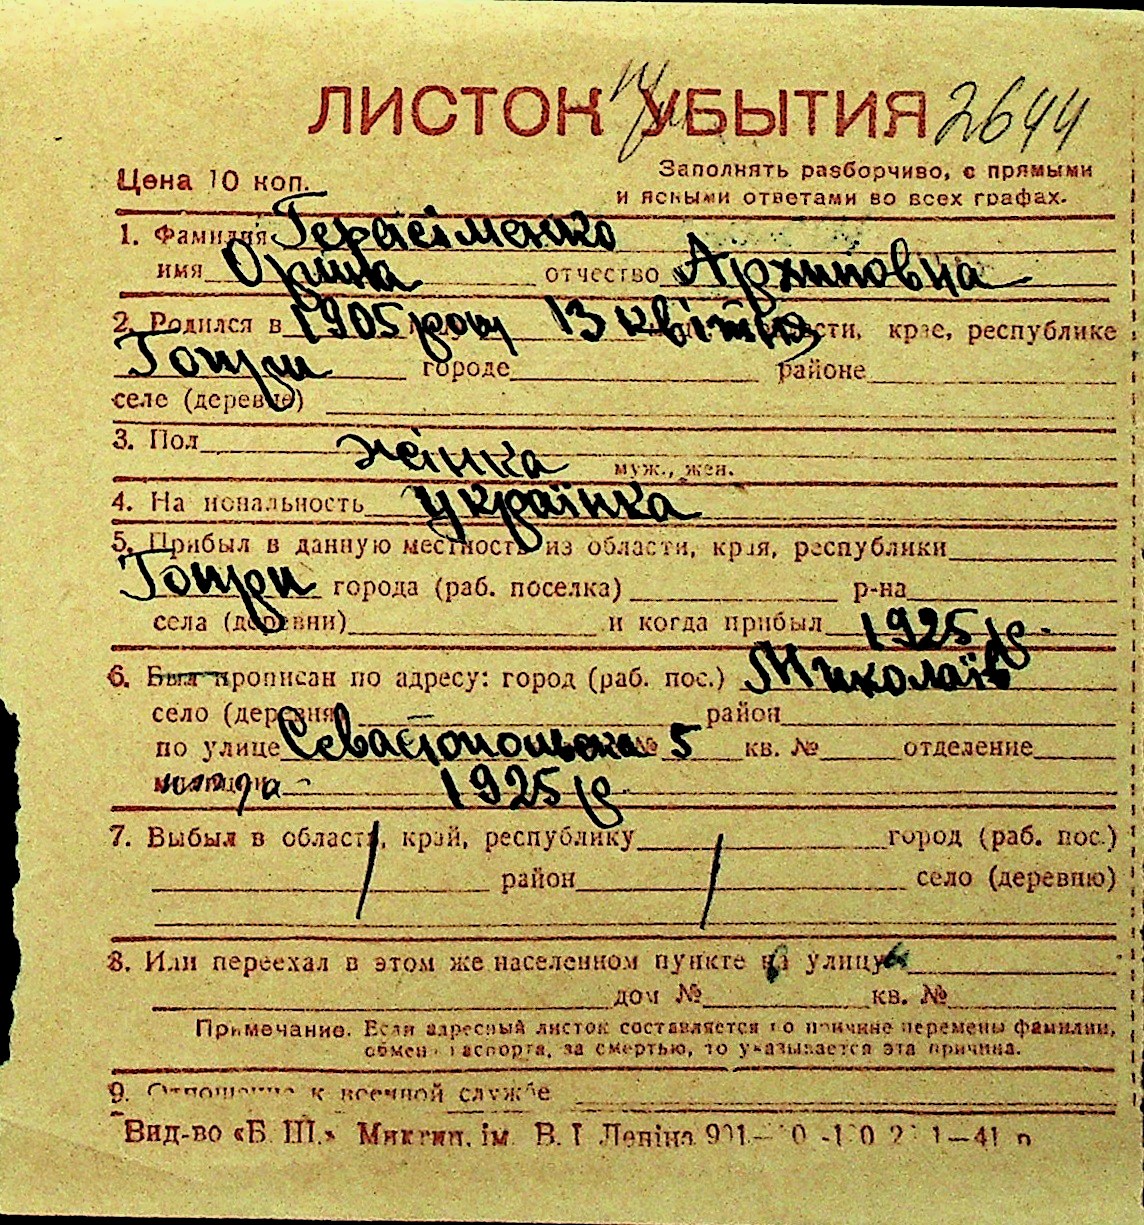 ЛИСТОК УБЫТИЯ 2644
Цена 10 коп.
Заполнять разборчиво, с прямыми
и ясными ответами во всех графах.
1. Фамилия Герасіменко
имя Орина отчество Архиповна
2. Родился в 1905 року 13 квітня области, крае, республике
городе районе
селе (деревне)
3. Пол жінка муж., жен.
4. Национальность українка
5. Прибыл в данную местность из области, края, республики
города (раб. поселка) р-на
села (деревни) и когда прибыл 1925 р.
6. Был прописан по адресу: город (раб. пос.) Миколаїв
село (деревня) район
по улице Севастопольска № 5 кв. № отделение
милиции 1925 р.
7. Выбыл в область, край, республику город (раб. пос.)
район село (деревню)
8. Или переехал в этом же населенном пункте на улицу
дом № кв. №
Примечание. Если адресный листок составляется по причине перемены фамилии,
обмена паспорта, за смертью, то указывается эта причина.
9. Отношение к военной службе
Вид-во «Б. Ш.» ім. В. І. Леніна